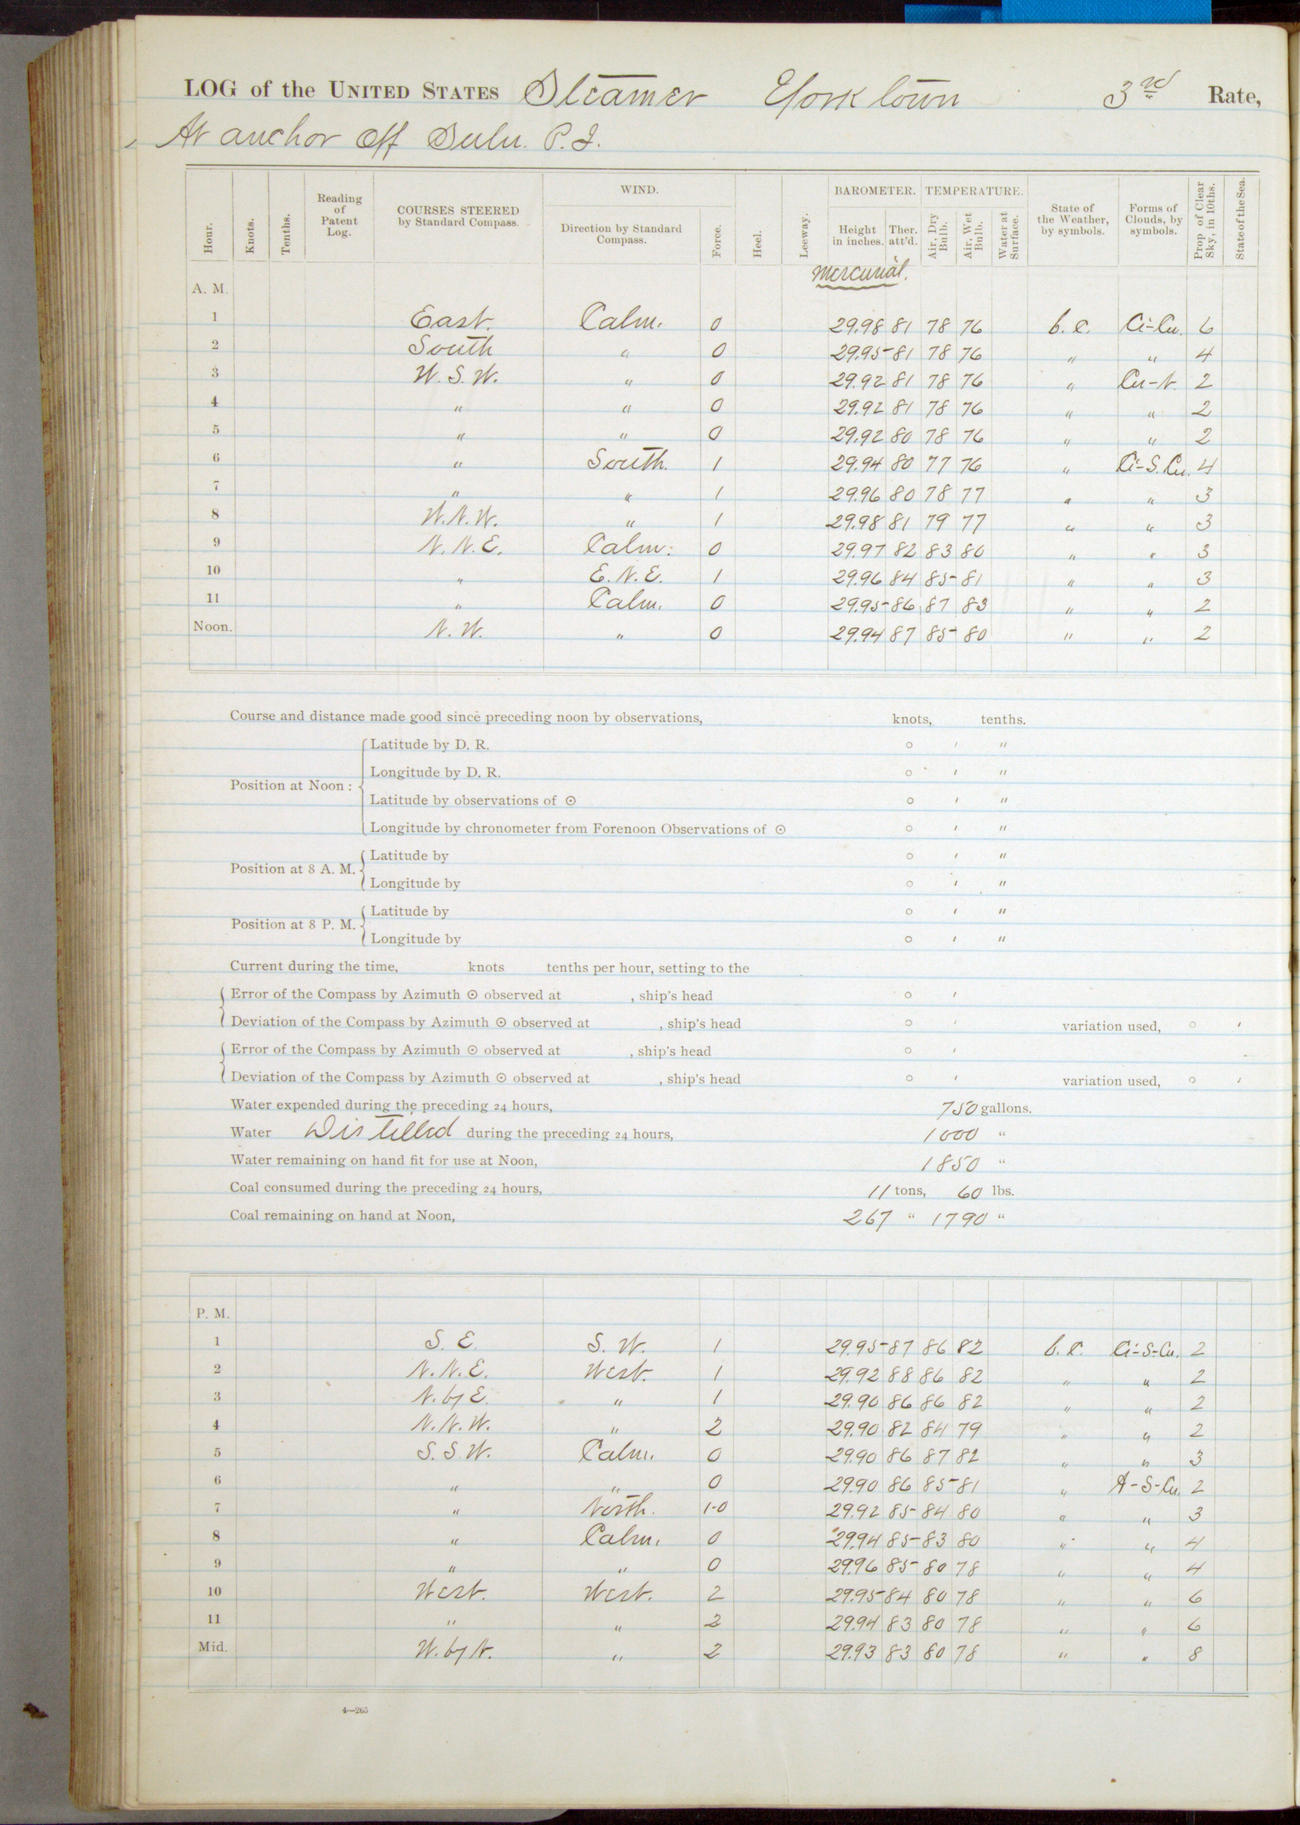 LOG of the UNITED STATES Steamer Yorktown 3rd Rate,
At anchor off Sulu. P.I.
Hour. Knots. Tenths. Reading of Patent Log. COURSES STEERED by Standard Compass. WIND. Direction by Standard Compass. Force. Heel. Leeway. BAROMETER. Height in inches. Ther. att'd. TEMPERATURE. Air, Dry Bulb. Air, Wet Bulb. Water at Surface. State of the Weather, by symbols. Forms of Clouds, by symbols. Prop of Clear Sky, in 10ths. State of the Sea.
Mercurial.
A. M.
1 East. Calm. 0 29.98 81 78 76 b.c. Ci-Cu. 6
2 South " 0 29.95 81 78 76 " " 4
3 W.S.W. " 0 29.92 81 78 76 " Cu-N. 2
4 " " 0 29.92 81 78 76 " " 2
5 " " 0 29.92 80 78 76 " " 2
6 " South. 1 29.94 80 77 76 " Ci-S.Cu. 4
7 " " 1 29.96 80 78 77 " " 3
8 W.N.W. " 1 29.98 81 79 77 " " 3
9 N.N.E. Calm. 0 29.97 82 83 80 " " 3
10 " E.N.E. 1 29.96 84 85 81 " " 3
11 " Calm. 0 29.95 86 87 83 " " 2
Noon. N.W. " 0 29.94 87 85 80 " " 2
Course and distance made good since preceding noon by observations, knots, tenths.
Position at Noon: Latitude by D. R. ° ' "
Longitude by D. R. ° ' "
Latitude by observations of ☉ ° ' "
Longitude by chronometer from Forenoon Observations of ☉ ° ' "
Position at 8 A. M. Latitude by ° ' "
Longitude by ° ' "
Position at 8 P. M. Latitude by ° ' "
Longitude by ° ' "
Current during the time, knots tenths per hour, setting to the
Error of the Compass by Azimuth ☉ observed at , ship's head ° '
Deviation of the Compass by Azimuth ☉ observed at , ship's head ° ' variation used, ° '
Error of the Compass by Azimuth ☉ observed at , ship's head ° '
Deviation of the Compass by Azimuth ☉ observed at , ship's head ° ' variation used, ° '
Water expended during the preceding 24 hours, 750 gallons.
Water Distilled during the preceding 24 hours, 1000 "
Water remaining on hand fit for use at Noon, 1850 "
Coal consumed during the preceding 24 hours, 11 tons, 60 lbs.
Coal remaining on hand at Noon, 267 " 1790 "
P. M.
1 S.E. S.W. 1 29.95 87 86 82 b.c. Ci-S-Cu. 2
2 N.N.E. West. 1 29.92 88 86 82 " " 2
3 N. by E. " 1 29.90 86 86 82 " " 2
4 N.N.W. " 2 29.90 82 84 79 " " 2
5 S.S.W. Calm. 0 29.90 86 87 82 " " 3
6 " " 0 29.90 86 85 81 " A-S-Cu. 2
7 " North. 1-0 29.92 85 84 80 " " 3
8 " Calm. 0 29.94 85 83 80 " " 4
9 " " 0 29.96 85 80 78 " " 4
10 West. West. 2 29.95 84 80 78 " " 6
11 " " 2 29.94 83 80 78 " " 6
Mid. W. by N. " 2 29.93 83 80 78 " " 8
4—265